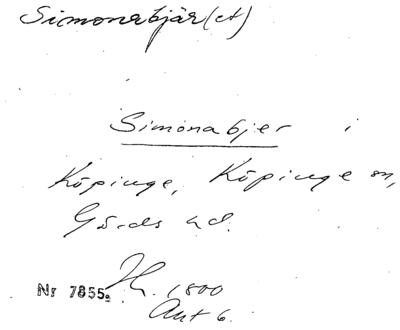 Simonabjär(et)
Simonabjer i
Köpinge, Köpinge sn,
Gärds hd.
Nr 7855. 1800
Akt 6.